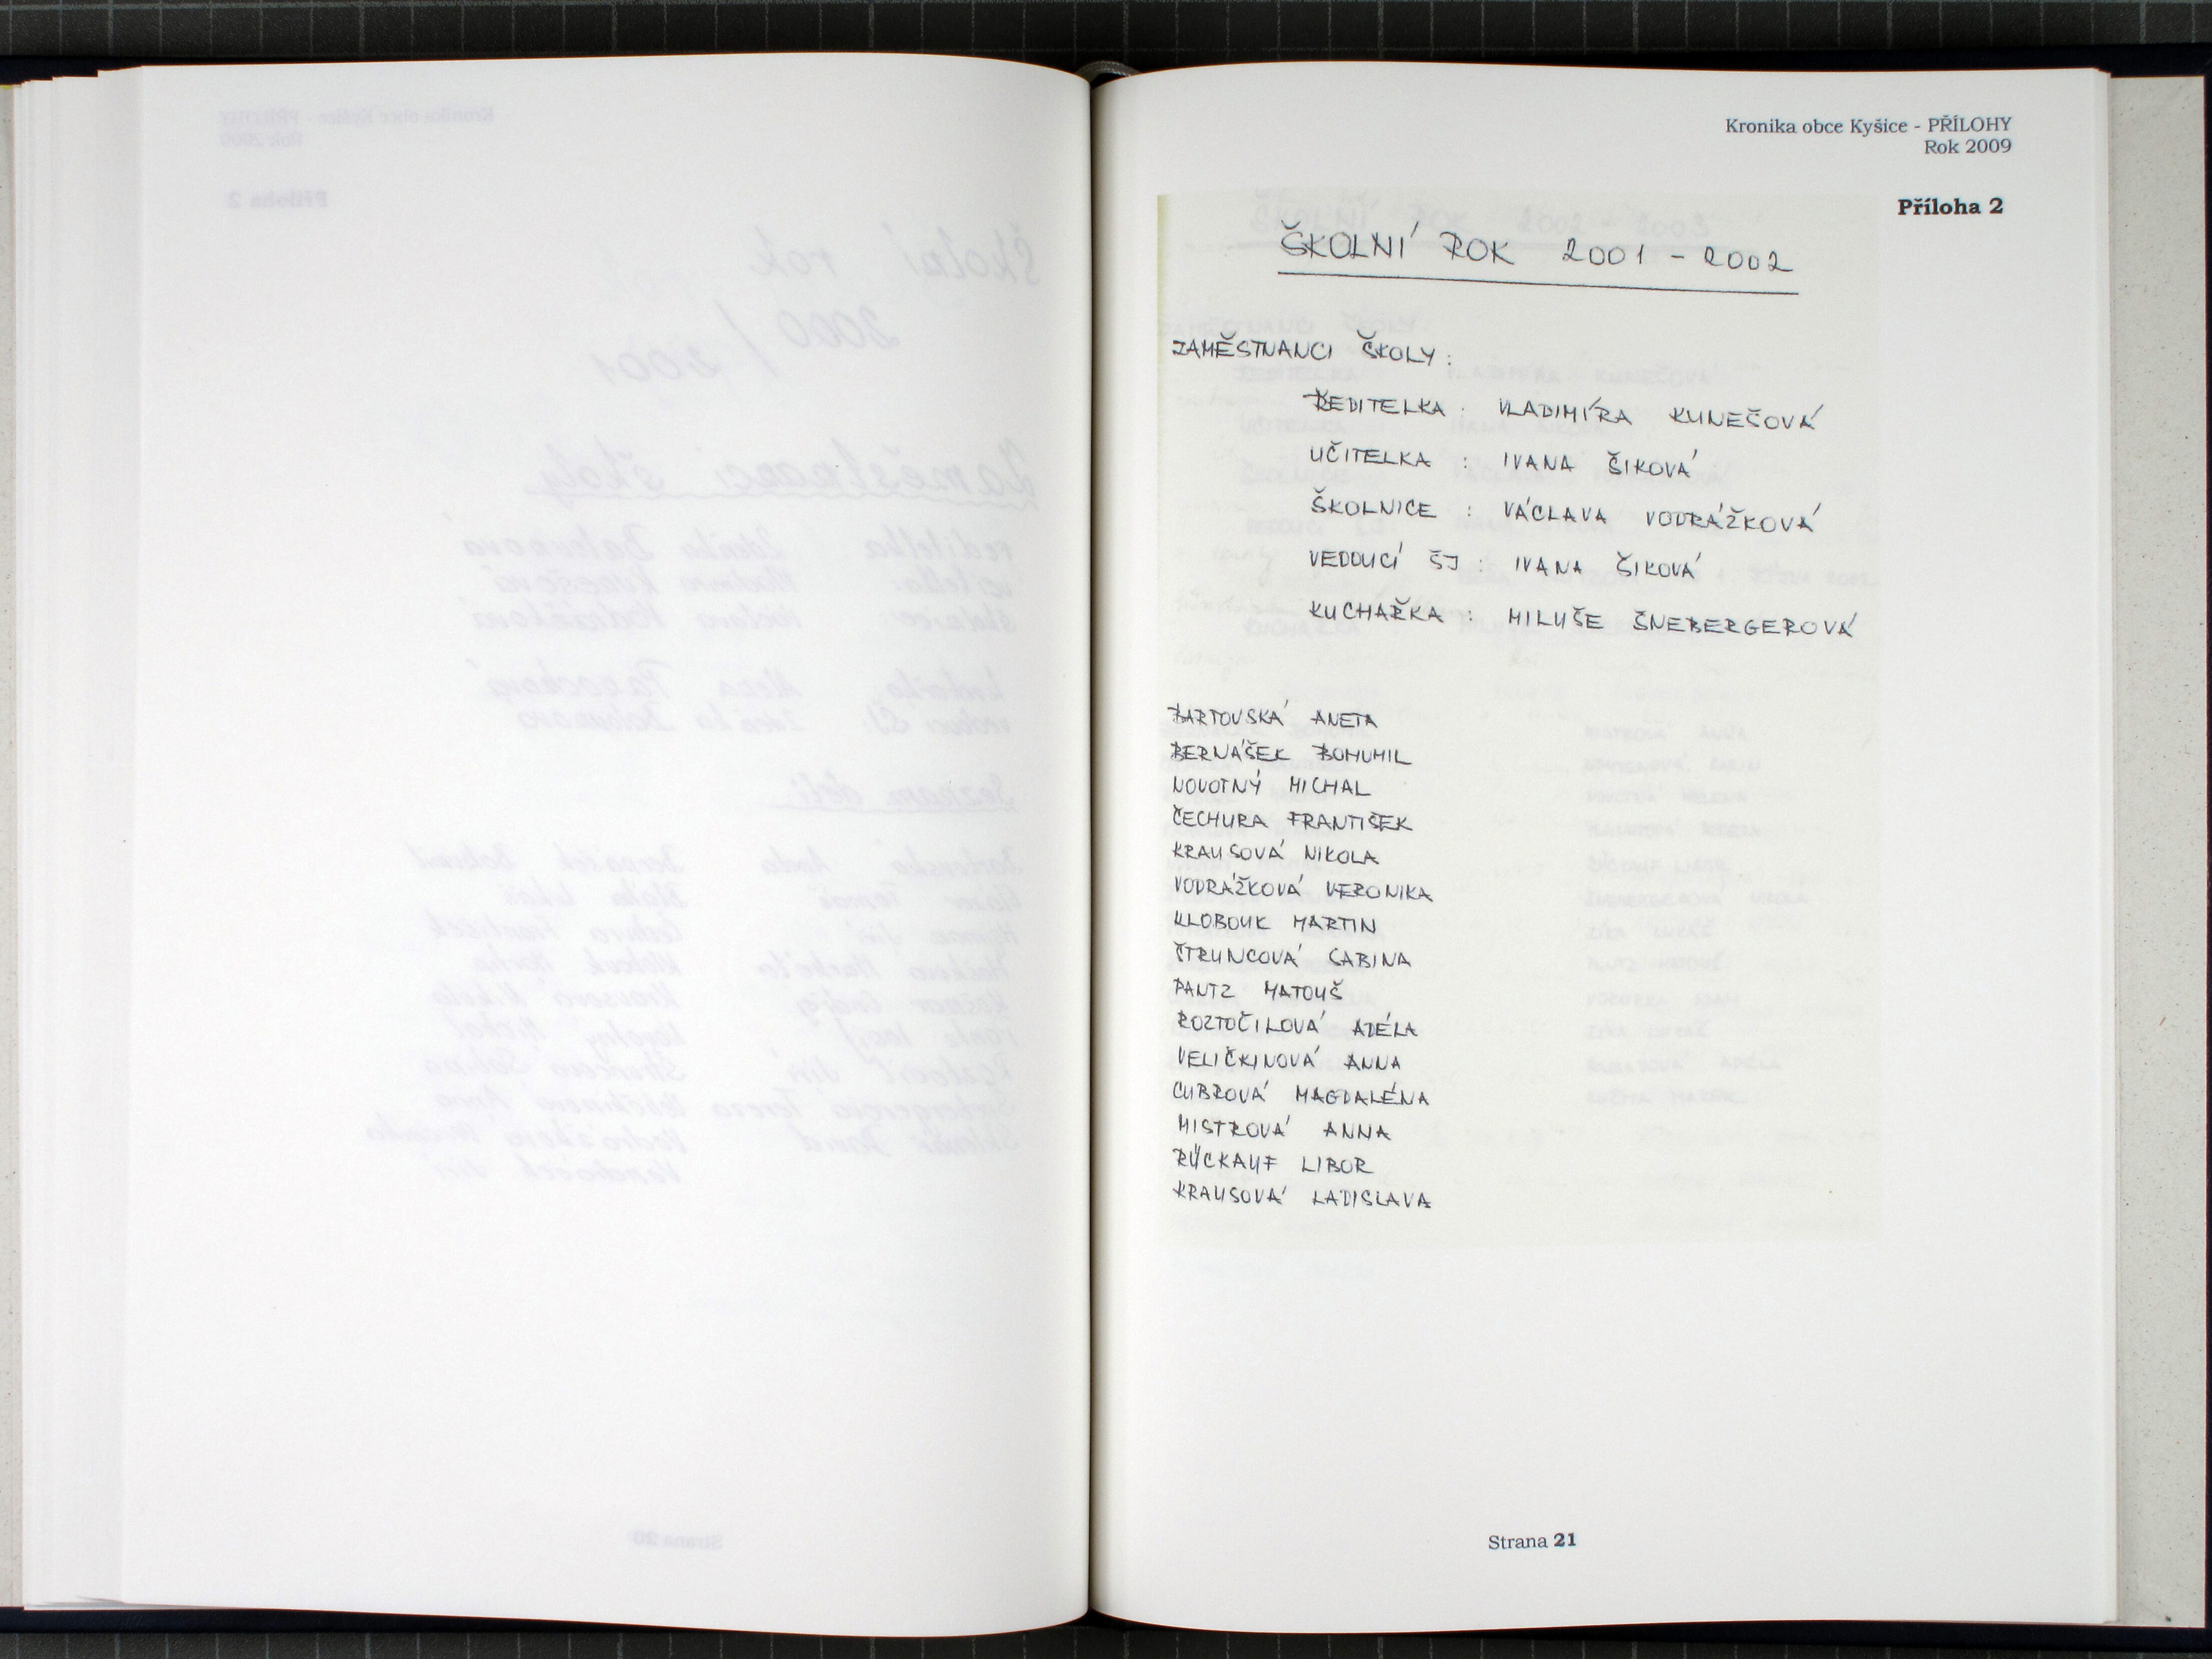 Kronika obce Kyšice - PŘÍLOHY
Rok 2009
Příloha 2
ŠKOLNÍ ROK 2001 - 2002
ZAMĚSTNANCI ŠKOLY:
ŘEDITELKA : VLADIMÍRA KUNEŠOVÁ
UČITELKA : IVANA ŠIKOVÁ
ŠKOLNICE : VÁCLAVA VODRÁŽKOVÁ
VEDOUCÍ ŠJ : IVANA ŠIKOVÁ
KUCHAŘKA : MILUŠE ŠNEBERGEROVÁ
BARTOVSKÁ ANETA
BERNÁŠEK BOHUMIL
NOVOTNÝ MICHAL
ČECHURA FRANTIŠEK
KRAUSOVÁ NIKOLA
VODRÁŽKOVÁ VERONIKA
KLOBOUK MARTIN
ŠTRUNCOVÁ SABINA
PANTZ MATOUŠ
ROZTOČILOVÁ ADÉLA
VELIČKINOVÁ ANNA
CUBROVÁ MAGDALÉNA
MISTROVÁ ANNA
RÜCKAUF LIBOR
KRAUSOVÁ LADISLAVA
Strana 21